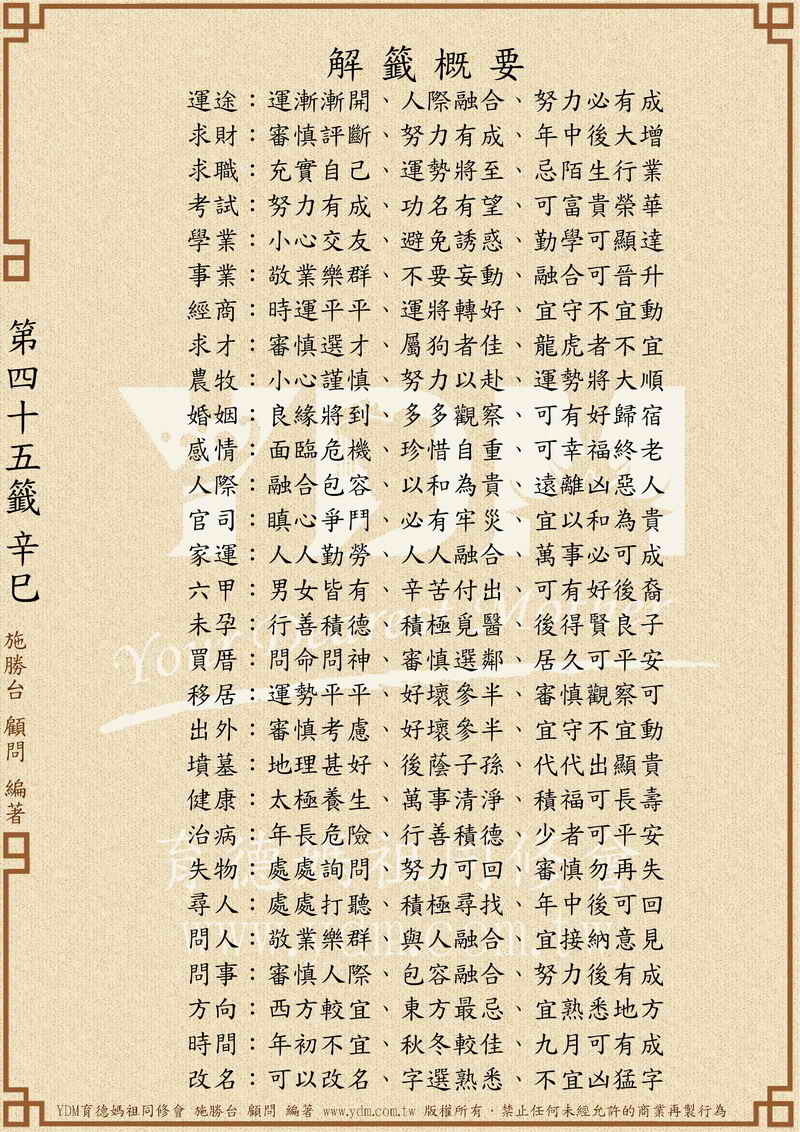 解籤概要
運途：運漸漸開、人際融合、努力必有成
求財：審慎評斷、努力有成、年中後大增
求職：充實自己、運勢將至、忌陌生行業
考試：努力有成、功名有望、可富貴榮華
學業：小心交友、避免誘惑、勤學可顯達
事業：敬業樂群、不要妄動、融合可晉升
經商：時運平平、運將轉好、宜守不宜動
求才：審慎選才、屬狗者佳、龍虎者不宜
農牧：小心謹慎、努力以赴、運勢將大順
婚姻：良緣將到、多多觀察、可有好歸宿
感情：面臨危機、珍惜自重、可幸福終老
人際：融合包容、以和為貴、遠離凶惡人
官司：瞋心爭鬥、必有牢災、宜以和為貴
家運：人人勤勞、人人融合、萬事必可成
六甲：男女皆有、辛苦付出、可有好後裔
未孕：行善積德、積極覓醫、後得賢良子
買厝：問命問神、審慎選鄰、居久可平安
移居：運勢平平、好壞參半、審慎觀察可
出外：審慎考慮、好壞參半、宜守不宜動
墳墓：地理甚好、後蔭子孫、代代出顯貴
健康：太極養生、萬事清淨、積福可長壽
治病：年長危險、行善積德、少者可平安
失物：處處詢問、努力可回、審慎勿再失
尋人：處處打聽、積極尋找、年中後可回
問人：敬業樂群、與人融合、宜接納意見
問事：審慎人際、包容融合、努力後有成
方向：西方較宜、東方最忌、宜熟悉地方
時間：年初不宜、秋冬較佳、九月可有成
改名：可以改名、字選熟悉、不宜凶猛字
第四十五籤 辛巳
施勝台 顧問 編著
YDM
Your Dearest Mother
育德媽祖同修會
www.ydm.com.tw
YDM育德媽祖同修會 施勝台 顧問 編著 www.ydm.com.tw 版權所有．禁止任何未經允許的商業再製行為